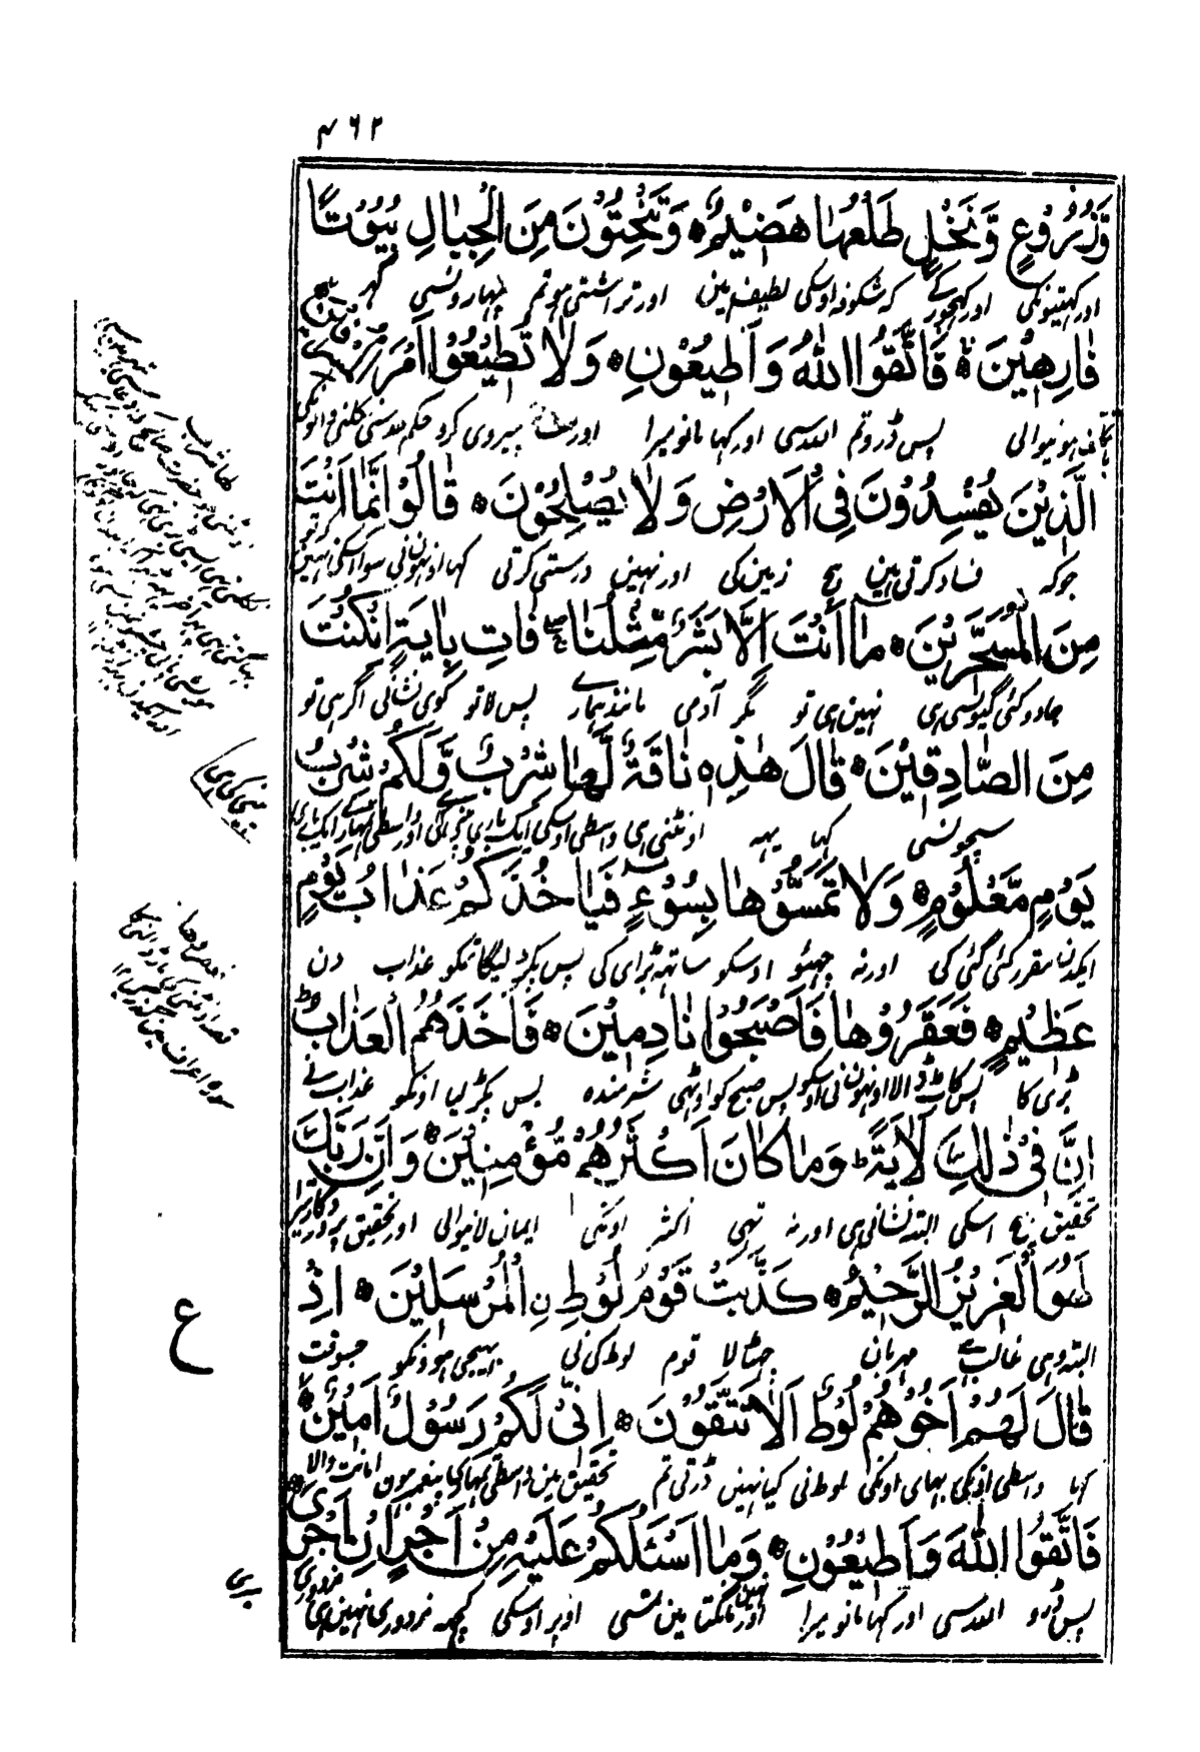 ۴۶۲
وَّزُرُوْعٍ وَّنَخْلٍ طَلْعُهَا هَضِيْمٌ وَتَنْحِتُوْنَ مِنَ الْجِبَالِ بُيُوْتًا
اور کہیتیونکی اور کہجور کے کہ شکوفہ اوسکی لطیف ہین اور تراشتی ہو تم پہارونسی گہر
فَارِهِيْنَ فَاتَّقُوا اللّٰهَ وَاَطِيْعُوْنِ وَلَا تُطِيْعُوْا اَمْرَ الْمُسْرِفِيْنَ
پس ڈرو تم اللہ سی اور کہا مانو میرا اور مت پیروی کرو حکم حد سی نکلنی والونکی
الَّذِيْنَ يُفْسِدُوْنَ فِى الْاَرْضِ وَلَا يُصْلِحُوْنَ قَالُوْا اِنَّمَا اَنْتَ
جو کہ فساد کرتی ہین بیچ زمین کی اور نہین درستی کرتی کہا اونہون نی سوا اسکی نہین کہ تو
مِنَ الْمُسَحَّرِيْنَ مَا اَنْتَ اِلَّا بَشَرٌ مِّثْلُنَا فَاتِ بِاٰيَةٍ اِنْ كُنْتَ
جادو کئی گیونسی ہی نہین ہی تو مگر آدمی مانند ہمارے پس لا تو کوی نشانی اگر ہی تو
مِنَ الصّٰدِقِيْنَ قَالَ هٰذِهٖ نَاقَةٌ لَّهَا شِرْبٌ وَّلَكُمْ شِرْبُ
سچونسی کہا یہہ اونٹنی ہی واسطی اوسکی ایک باری پینی کی اور واسطی تمہارے ایک باری
يَوْمٍ مَّعْلُوْمٍ وَلَا تَمَسُّوْهَا بِسُوْٓءٍ فَيَاْخُذَكُمْ عَذَابُ يَوْمٍ
ایکدن مقرر کئی گئی کی اور نہ چہئو اوسکو ساتہہ برای کی پس پکڑ لیگا تمکو عذاب دن
عَظِيْمٍ فَعَقَرُوْهَا فَاَصْبَحُوْا نَادِمِيْنَ فَاَخَذَهُمُ الْعَذَابُ
بڑی کا پس کاٹ ڈالا اونہون نی اوسکو پس صبح کو اوٹہی شرمندہ پس پکڑ لیا اونکو عذاب نے
اِنَّ فِىْ ذٰلِكَ لَاٰيَةً وَمَا كَانَ اَكْثَرُهُمْ مُّؤْمِنِيْنَ وَاِنَّ رَبَّكَ
تحقیق بیچ اسکی البتہ نشانی ہی اور نہ تہی اکثر اونکی ایمان لانیوالی اور تحقیق پروردگار تیرا
لَهُوَ الْعَزِيْزُ الرَّحِيْمُ كَذَّبَتْ قَوْمُ لُوْطِ نِ الْمُرْسَلِيْنَ اِذْ
البتہ وہی غالب ہے مہربان جہٹالا قوم لوط کی نی بہیجی ہوونکو جسوقت
قَالَ لَهُمْ اَخُوْهُمْ لُوْطٌ اَلَا تَتَّقُوْنَ اِنِّىْ لَكُمْ رَسُوْلٌ اَمِيْنٌ
کہا واسطی اونکی بہای اونکی لوط نی کیا نہین ڈرتی تم تحقیق مین واسطی تمہاری پیغمبر ہون امانت والا
فَاتَّقُوا اللّٰهَ وَاَطِيْعُوْنِ وَمَا اَسْئَلُكُمْ عَلَيْهِ مِنْ اَجْرٍ اِنْ اَجْرِىَ
پس ڈرو اللہ سی اور کہا مانو میرا اور نہین مانگتا مین تمسی اوپر اوسکی کچہہ مزدوری نہین ہی مزدوری
ع